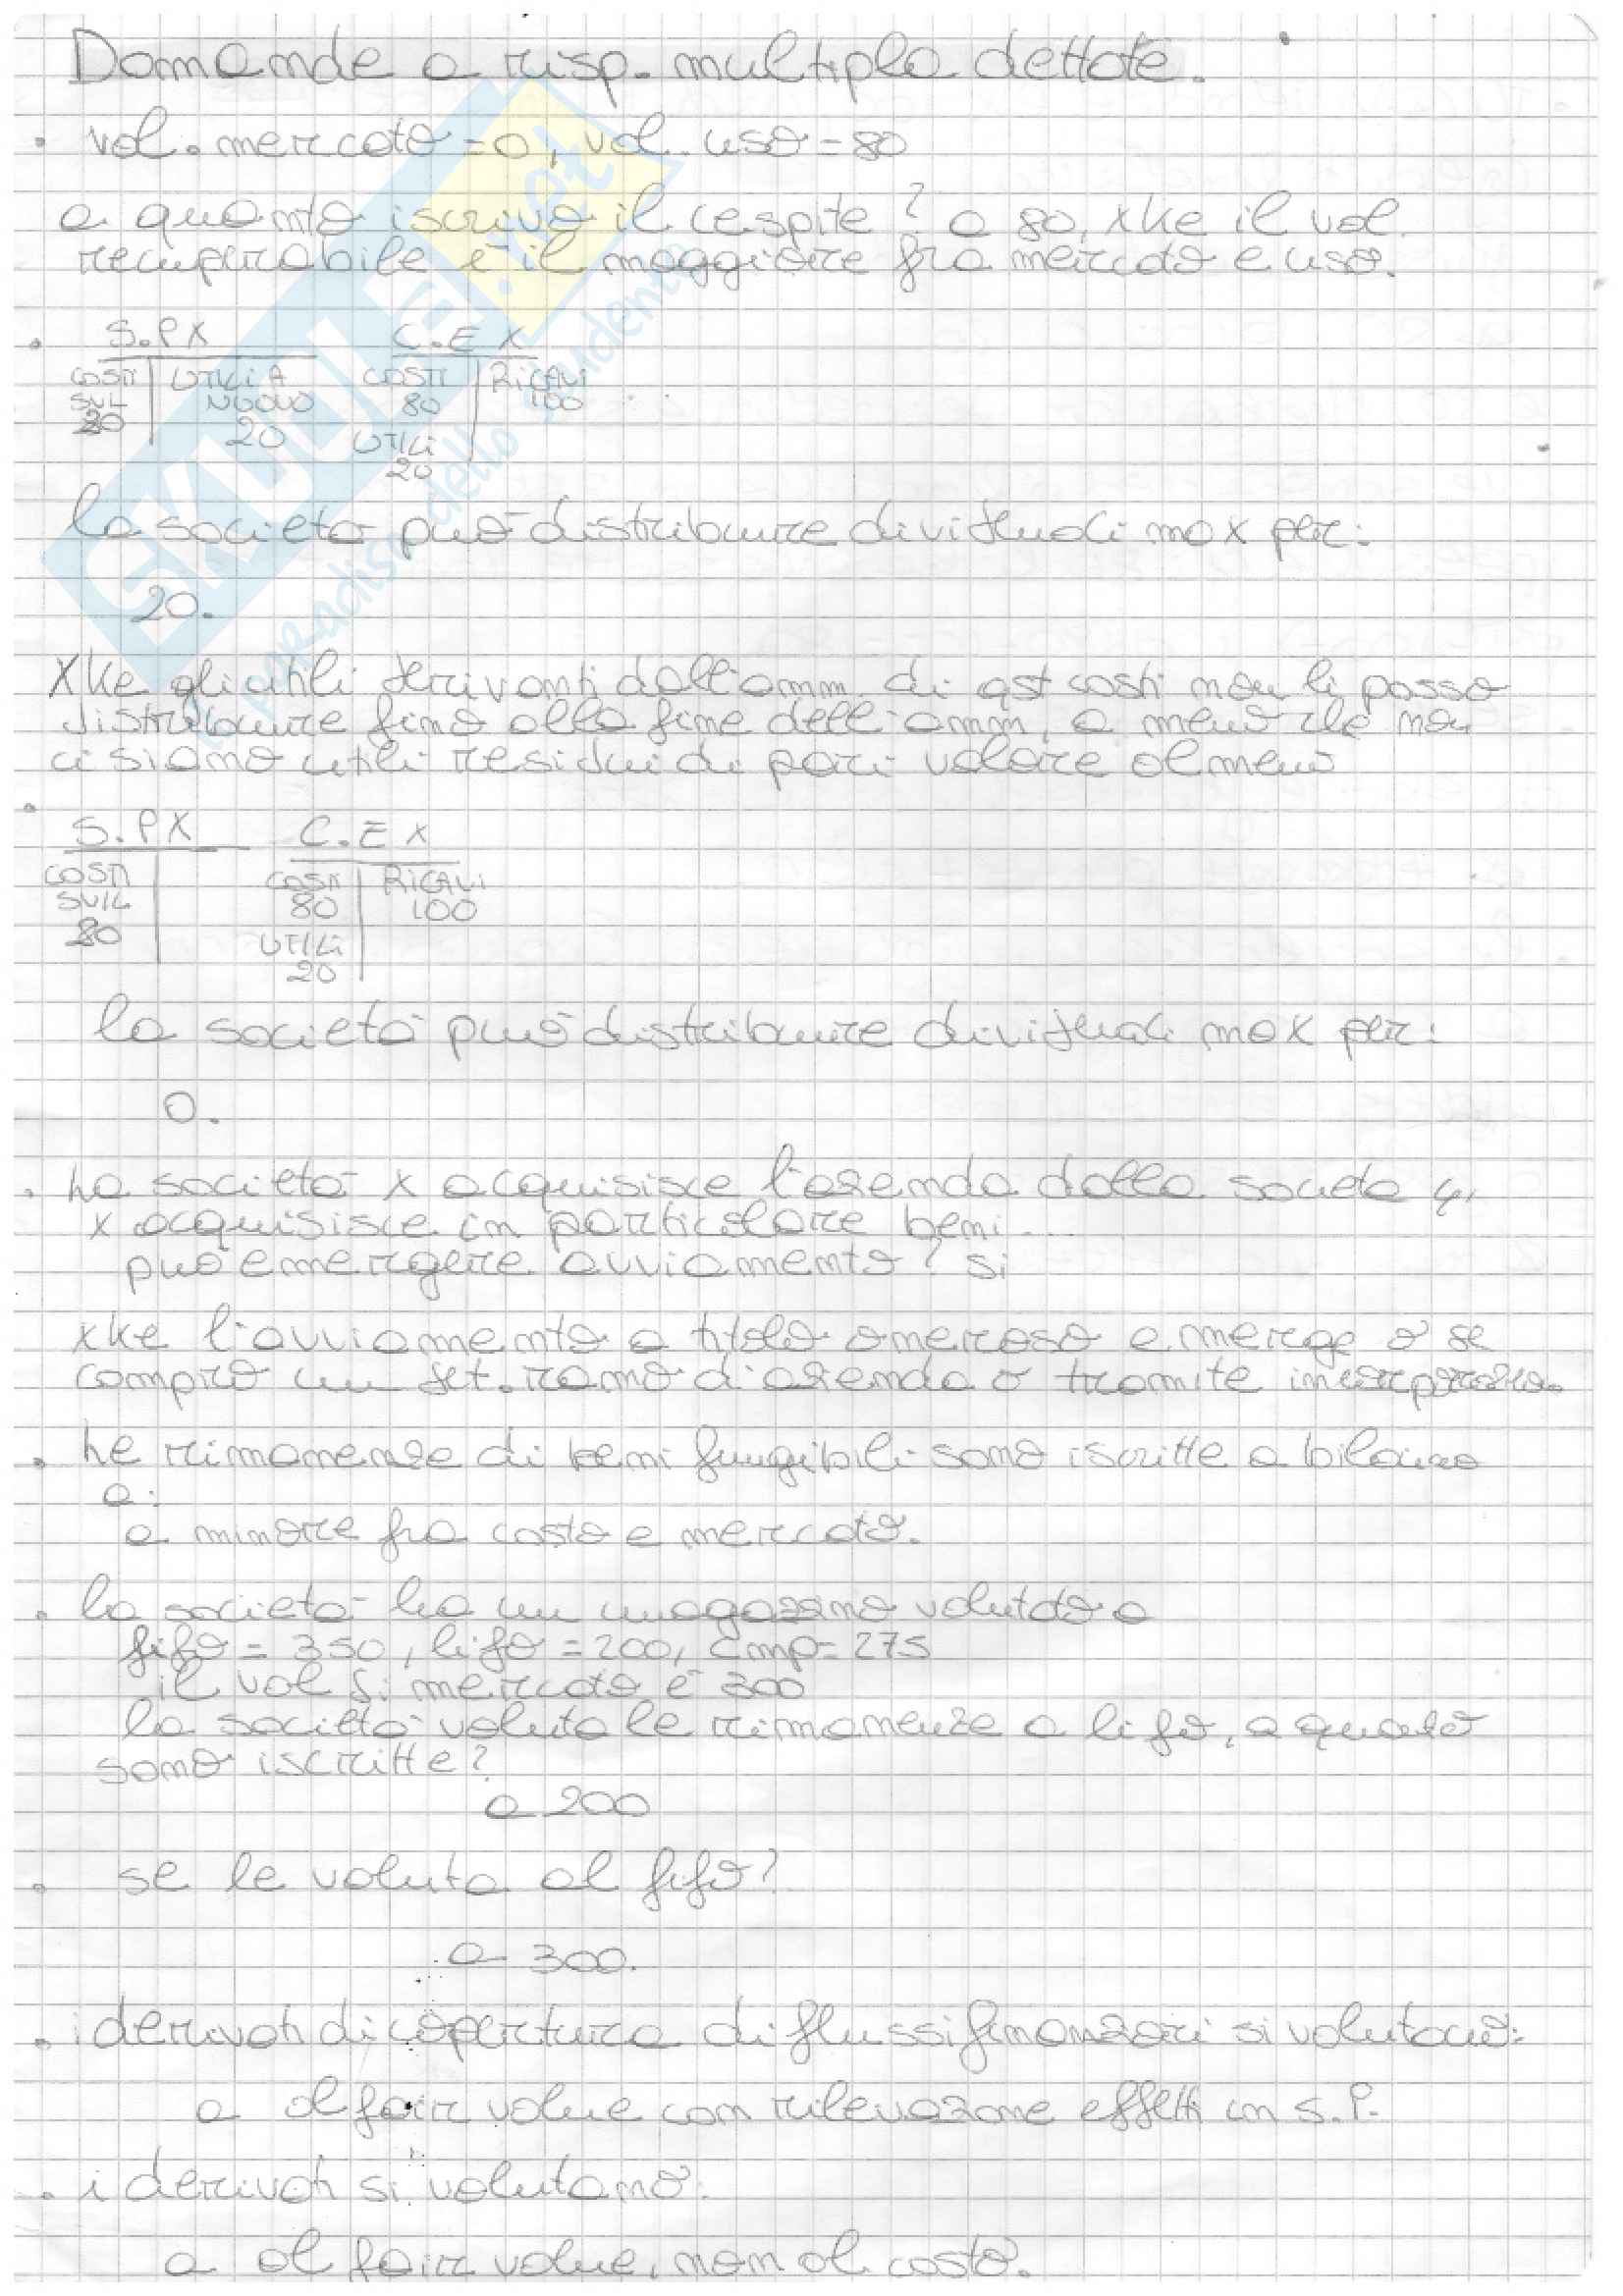 Domande a risp. multipla dettate.
• val. mercato = 0, val. uso = 80
a quanto iscrivo il cespite? a 80, xke il val.
recuperabile è il maggiore fra mercato e uso.
• S.P X C.E X
COSTI UTILI A COSTI RICAVI
SVIL NUOVO 80 100
20 20 UTILI
20
la società può distribuire dividendi max per:
20.
Xke gli utili derivanti dall'amm. di qst costi non li posso
distribuire fino alla fine dell'amm, a meno che non
ci siano utili residui di pari valore almeno
• S.P X C.E X
COSTI COSTI RICAVI
SVIL 80 100
80 UTILI
20
la società può distribuire dividendi max per:
0.
• La società x acquisisce l'azienda dalla società y,
x acquisisce in particolare beni...
può emergere avviamento? si
xke l'avviamento a titolo oneroso emerge o se
compro un det. ramo d'azienda o tramite
• Le rimanenze di beni fungibili sono iscritte a bilancio
a:
a minore fra costo e mercato.
• la società ha un magazzino valutato a
fifo = 350, lifo = 200, Cmp = 275
il val di mercato è 300
la società valuta le rimanenze a lifo, a quanto
sono iscritte?
a 200
• se le valuta al fifo?
a 300.
• i derivati di copertura di flussi finanziari si valutano:
a al fair value con rilevazione effetti in S.P.
• i derivati si valutano:
a al fair value, non al costo.
SKUOLA.net
paradiso dello studente